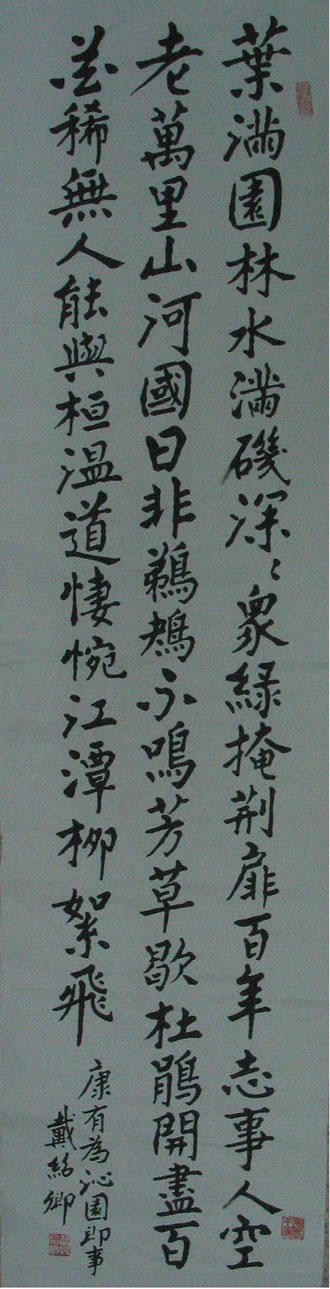 葉滿園林水滿磯深〻衆綠掩荆扉百年志事人空
老萬里山河國日非鵜鴂不鳴芳草歇杜鵑開盡百
花稀無人能與桓溫道悽惋江潭柳絮飛
康有為沁園即事
戴紹卿